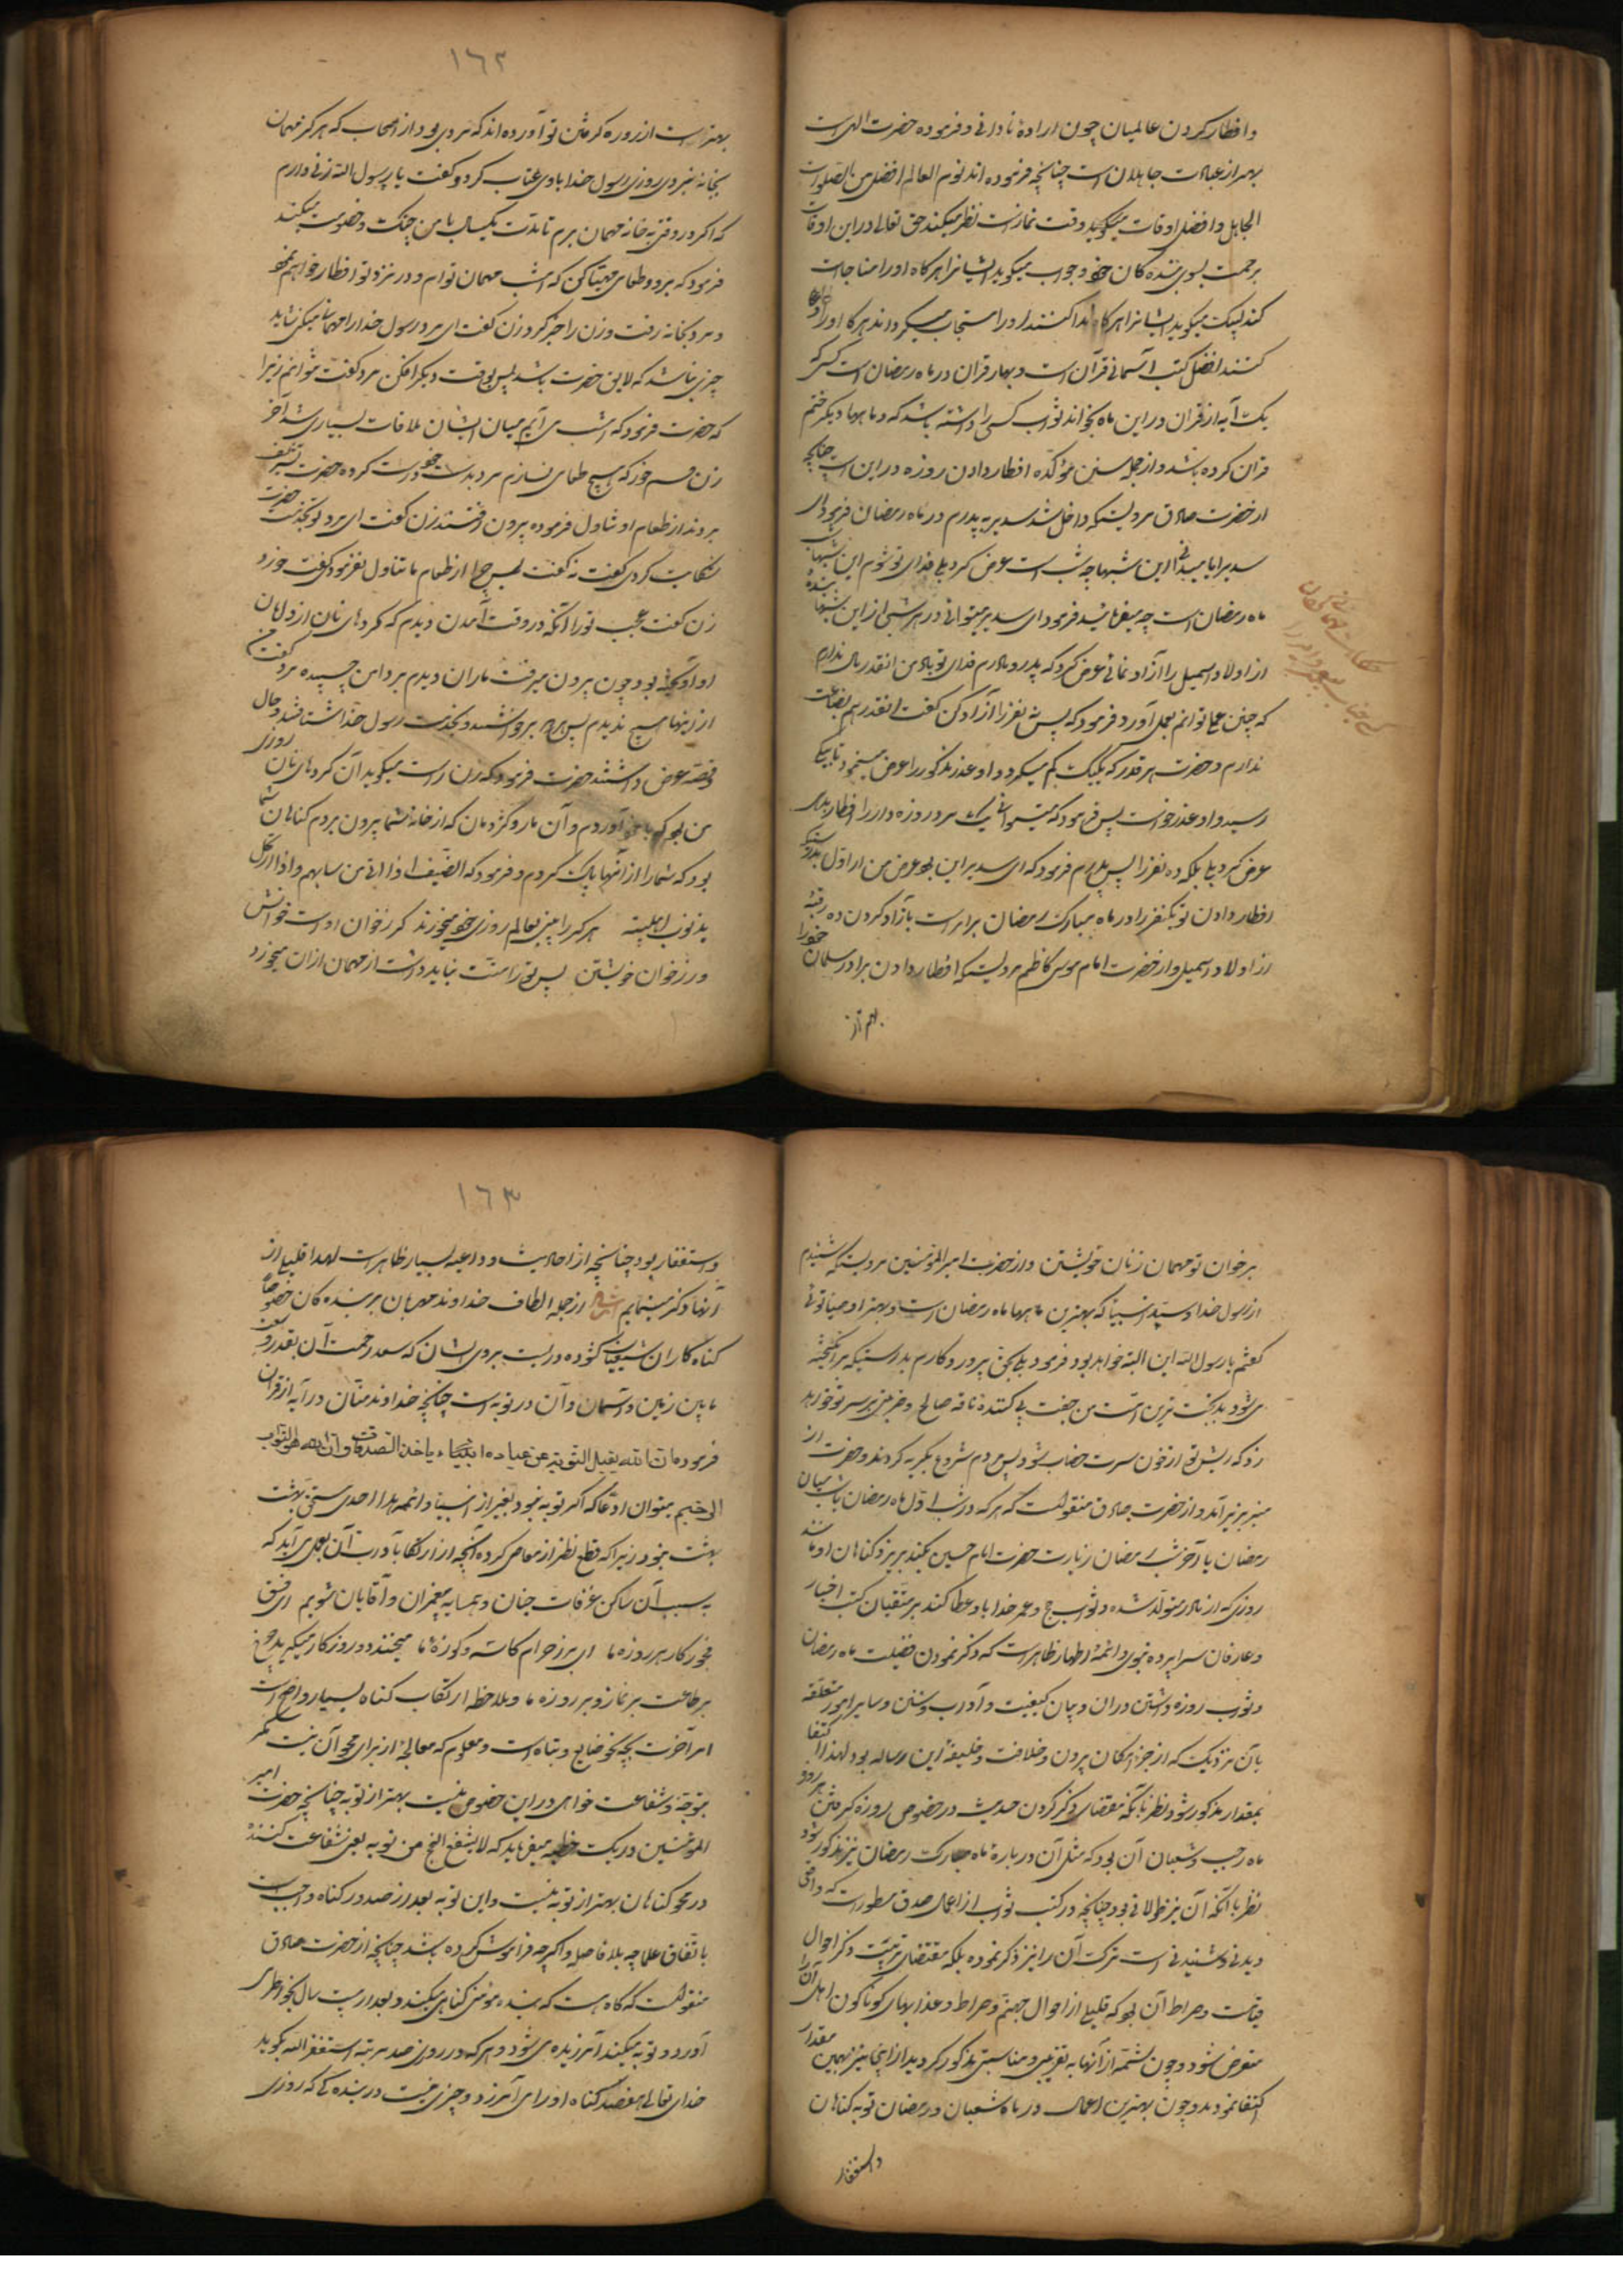 و افطار کردن عالمیان چون اراده نادانی و فرموده حضرت الهی است
بهتر از عبادت جاهلان است چنانچه فرموده اند نوم العالم افضل من الصلوة
الجاهل و افضل اوقات میگوید وقت نماز است نظر میکند حق تعالی در این اوقات
برحمت بسوی بنده کان خود و جواب میگوید ایشانرا هرگاه او را مناجات
کنند لبیک میگوید ایشانرا هرگاه ندا کنند او را مستجاب میگرداند هرگاه او را دعا
کنند افضل کتب آسمانی قرآن است و بهار قران در ماه رمضان است کسی که
یک آیه از قران در این ماه بخواند ثواب کسی را داشته باشد که در ماهها دیگر ختم
قران کرده باشد و از جمله سنن مؤکده افطار دادن روزه در این است چنانچه
از حضرت صادق مرویست که داخل شد سدیر به پدرم در ماه رمضان فرمود ای
سدیر ایا میدانی این شبها چه شب است عرض کرد بلی فدای تو شوم این شبهای
ماه رمضان است چه میفرمائید فرمود ای سدیر میتوانی در هر شبی از این شبها بنده
از اولاد اسمعیل را آزاد نمائی عرض کرد که پدر و مادرم فدای تو باد من انقدر مال ندارم
که چنین عمل توانم بعمل آورد فرمود که پس نه نفر را آزاد کن گفت انقدر هم بضاعت
ندارم و حضرت هر قدر که یکیک کم میکرد و او عذر مذکور را عرض مینمود تا بیک
رسید و او عذر خواست پس فرمود که میتوانی یک مرد روزه دار را افطار بدهی
عرض کرد بلی بلکه ده نفر را پس پدرم فرمود که ای سدیر این بود عرض من از اول بدرستیکه
افطار دادن تو یکنفر را در ماه مبارک رمضان برابر است بازاد کردن ده رقبه
از اولاد اسمعیل و از حضرت امام موسی کاظم مرویست که افطار دادن برادر مسلمان خود را
بهتر از
بهتر است از روزه گرفتن تو آورده اند که مردی بود از اصحاب که هرگز مهمان
بخانه نبردی روزی رسول خدا با وی عتاب کرد و گفت یا رسول الله زنی دارم
که اگر در وقتی بخانه مهمان برم تا مدت یکسال با من جنگ و خصومت میکند
فرمود که برو و طعامی مهیا کن که امشب مهمان توام و در نزد تو افطار خواهم نمود
مرد بخانه رفت و زن را خبر کرد زن گفت ای مرد رسول خدا را مهمان میکنی شاید
چیزی نباشد که لایق حضرت باشد پس بوقت دیگر افکن مرد گفت نتوانم زیرا
که حضرت فرمود که امشب می آیم میان ایشان ملاقات بسیاری شد آخر
زن قسم خورد که هیچ طعامی نسازم مرد بدست خود درست کرده حضرت تشریف
بردند از طعام او تناول فرموده بیرون رفتند زن گفت ای مرد تو بخدمت حضرت
شکایت کردی گفت نه گفت پس چرا از طعام ما تناول نفرمود گفت خورد
زن گفت عجب تو را آنکه در وقت آمدن دیدم که گردهای نان از دامان
او آویخته بود چون بیرون میرفت ماران دیدم بر دامن چسپیده مرد گفت من
از اینها هیچ ندیدم پس هر دو برخواستند و بخدمت رسول خدا شتافتند و حال
و قصه عرض داشتند حضرت فرمود که زن راست میگوید آن گردهای نان روزی
من بود که با خود آوردم و آن مار و کژدمان که از خانه شما بیرون بردم گناهان شما
بود که شما را از آنها پاک کردم و فرمود که الضیف اذا اتی من سابهم و اذا ارتحل
بذنوب اهلبیته هر که را بینی بعالم روزی خود میخورند گر ز خوان او است خوانش
ور ز خوان خویشتن پس تو را منت نباید داشت از مهمان از ان میخورد
بر خوان تو مهمان ز نان خویشتن و از حضرت امیر المؤمنین مرویست که شنیدم
از رسول خدا و سید انبیا که بهترین ماهها ماه رمضان است و بهتر اوصیا توئی
گفتم یا رسول الله این البته خواهد بود فرمود بلی بحق پرورد کارم بدرستیکه برانگیخته
می شود بدبخت ترین امت من جفت پی کننده ناقه صالح و ضربتی بر سر تو خواهد
زد که ریش تو از خون سرت خضاب شود پس مردم شروع بگریه کردند و حضرت از
منبر بزیر آمد و از حضرت صادق منقولست که هر که در شب اول ماه رمضان یا شب میان
رمضان یا آخر شب رمضان زیارت حضرت امام حسین بکند بریزد گناهان او مانند
روزی که از مادر متولد شده و ثواب حج و عمره خدا باو عطا کند بر متتبعان کتب اخبار
و عارفان سراپرده نبوی و ائمه اطهار ظاهر است که ذکر نمودن فضیلت ماه رمضان
و ثواب روزه داشتن دران و بیان کیفیت و آداب و سنن و سایر امور متعلقه
بان نزدیک که از حیز امکان بیرون و خلاف وظیفه این رساله بود لهذا اکتفا
بمقدار مذکور شود نظر بانکه مقتضای ذکر کردن حدیث در خصوص روزه گرفتن هر دو
ماه رجب و شعبان آن بود که مثل آن در باره ماه مبارک رمضان نیز مذکور شود
نظر بانکه آن نیز طولانی بود چنانچه در کتب ثواب از اعمال صدق مسطور است که واقعی
دیدنی و شنیدنی است ترک آن را نیز ذکر نموده بلکه مقتضای تربیت ذکر احوال
قیامت و صراط آن بود که قلیلی از احوال جهنم و صراط و عذابهای کوناکون اهل آن را
متعرض شود و چون شمّه از آنها به تقریبی و مناسبتی مذکور گردید از اینجا نیز بهمین مقدار
اکتفا نمود و چون بهترین اعمال در ماه شعبان و رمضان توبه گناهان
و استغفار
و استغفار بود چنانچه از احادیث و ادعیه بسیار ظاهر است لهذا قلیلی از
آنها ذکر مینمایم از جمله الطاف خداوند مهربان بر بنده کان خصوصاً
گناه کاران شیعیان گشوده دریست بروی ایشان که سعه رحمت آن بقدر وسعت
مابین زمین و آسمان و آن در توبه است چنانچه خداوند منان در آیه از قران
فرموده ان الله یقبل التوبة عن عباده و یاخذ الصدقات و ان الله هو التواب
الرحیم میتوان ادعا که اگر توبه نبود بغیر از انبیا و ائمه هدا احدی مستحق بهشت
بهشت نبود زیرا که قطع نظر از معاصی کرده آنچه از ارتکابات آن بعمل می آید که
به سبب آن ساکن غرفات جنان و همسایه پیغمبران و آقایان شویم ای فسق
فجور کار هر روزه ما ای پر ز حرام کاسه و کوزه ما میخندد روزگار میگرید چرخ
بر طاعت بر نماز و بر روزه ما و ملاحظه ارتکاب گناه بسیار واضح است
امر آخرت بچه نحو ضایع و تباه است و معلوم که معالجه از برای محو آن نیست مگر
بتوجه و شفاعت خواهی در این خصوص نیست بهتر از توبه چنانچه حضرت امیر
المؤمنین در یک خطبه میفرماید که لا یشفع انجح من توبه یعنی شفاعت کننده
در محو گناهان بهتر از توبه نیست و این توبه بعد از صدور گناه واجب است
باتفاق علما چه بلا فاصله و اگر چه فراموش کرده باشد چنانچه از حضرت صادق
منقولست که گاه هست که بنده مؤمن گناهی میکند و بعد از بیست سال بخواطر
آورد و توبه میکند آمرزیده می شود و هر که در روزی صد مرتبه استغفر الله بگوید
خدای تعالی هفصد گناه او را می آمرزد و چیزی نیست در بنده که روزی
١٦٢
١٦٣